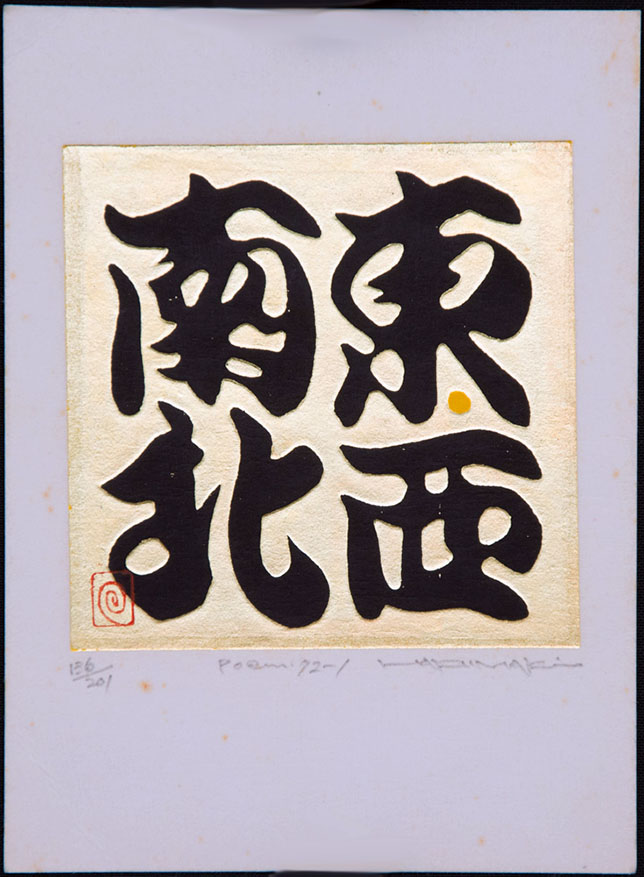 東西
南北
136/201 Poem 72-1 Haku Maki